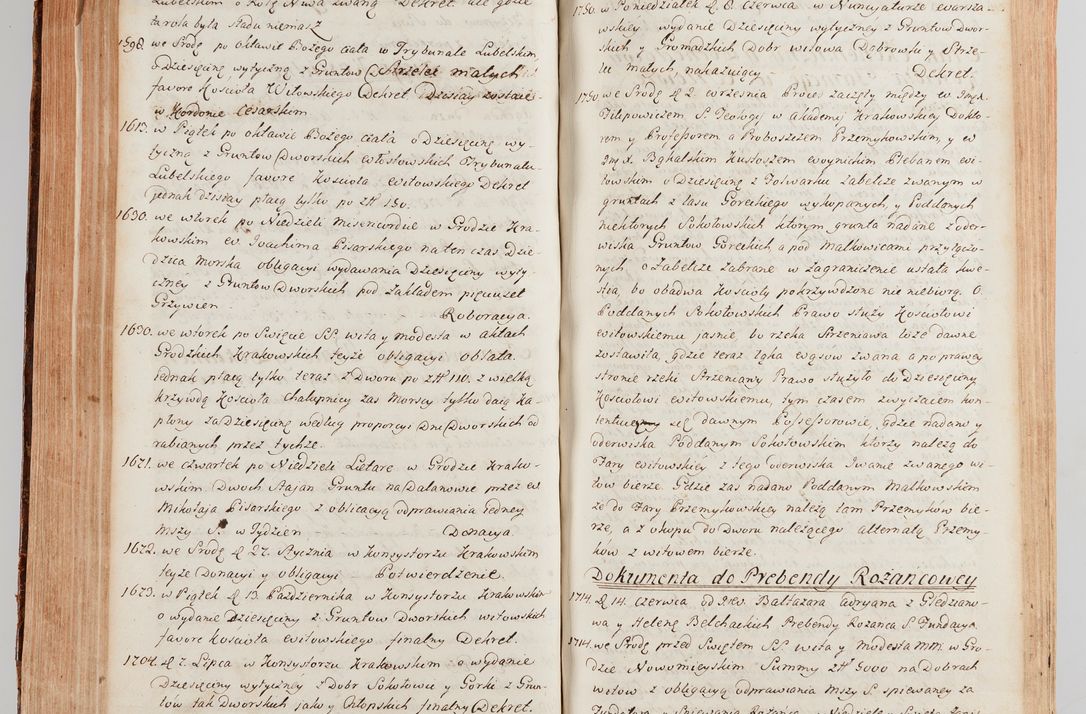 Lubelskim o Rolę Niwa zwaną Dekret ale gdzie
ta rola była śladu niemasz
1598. we Srodę po oktawie Bożego ciała w Trybunale Lubelskim
o Dziesięcinę wytyczną z Gruntow Strzelec małych
favore Kosciota Witowskiego Dekret Dzisiay zostaie
w Kordonie Cesarskim
1613. w Piątek po oktawie Bożego Ciała o Dziesięcinę wy-
tyczną z Gruntow Dworskich Trybunału
Lubelskiego favore Kosciota Witowskiego Dekret
jednak dzisiay płacą tylko po zł 150.
1630. we wtorek po Niedzieli Misericordiæ w Grodzie Kra-
kowskim W Joachima Pisarskiego na ten czas Dzie-
dzica Morska obligacyi wydawania Dziesięciny wyty-
czney z Gruntow Dworskich pod zakładem pięciuset
Grzywien Roboracya.
1630. we wtorek po Swięcie SS. Wita y Modesta w aktach
Grodzkich Krakowskich teyże obligacyi oblata.
iednak płacą tylko teraz z Dworu po zł 110. z wielką
krzywdą Kosciota chałupnicy zas Morscy tylko daią ka-
płony za Dziesięcinę według proporcyi Dni Dworskich od
rabianych przez tychże.
1671. we czwartek po Niedzieli Lætare w Grodzie Krako-
wskim Dwoch Stajan Gruntu na Datanowie przez W
Mikołaja Pisarskiego z obligacyą odprawiania iedney
Mszy S. w tydzien Donacya.
1672. we Srodę d 27. Stycznia w Konsystorzu Krakowskim
teyże Donacyi y obligacyi Potwierdzenie.
1673. w Piątek d 13. Października w Konsystorzu Krakowskim
o wydanie Dziesięciny z Gruntow Dworskich witowskich
favore kosciota Witowskiego finalny Dekret.
1704. d 7. Lipca w Konsystorzu Krakowskim o wydanie
Dziesięciny wytyczney z Dobr Sokołowic y Gorki z Grun-
tow tak Dworskich jako y Chłopskich finalny Dekret
1750. w Poniedziałek d 8. Czerwca w Nuncyaturze Warsza-
wskiey wydanie Dziesięciny wytyczney z Gruntow Dwor-
skich y Gromadzkich Dobr Witowa Dąbrowki y Strze-
lec małych nakazuiący Dekret.
1750. we Srodę d 2. Września Proces zaczęty między W Jmx.
Filipowiczem S. Teologij w Akademij Krakowskiey Dokto-
rem y Professorem a Proboszczem Przemykowskim, y W
Jmx. Bghalskim Kustoszem Woynickim Plebanem Wi-
towskim o Dziesięcinę z Folwarku Zabelcze zwanym w
gruntach z lasu Goreckiego wykopanych y Poddanych
niektorych Sokołowskich ktorym grunta nadane z oder-
wiska Gruntow Goreckich a pod Malkowicami przyłączo-
nych, o Zabelcze zabrane w zagraniczenie ustała kwe-
stia, bo obadwa Kościoły pokrzywdzone nie niebiorą. O
Poddanych Sokołowskich Prawo służy Kosciołowi
Witowskiemu jasnie, bo rzeka Srzeniawa łoże dawne
zostawiła, gdzie teraz łąka Wąsow zwana a po prawey
stronie rzeki Strzeniawy Prawo służyło do Dziesięciny
Kosciołowi Witowskiemu, tym czasem zwyczaiem kon-
tentuiemy się dawnym Possessorowie, gdzie nadano y
oderwiska Poddanym Sokołowskim ktorzy należą do
Fary Witowskiey z tego oderwiska Iwanie zwanego Wi-
tow bierze. Gdzie zas nadano Poddanym Malkowskim
ze do Fary Przemykowskiey należą tam Przemykow bie-
rze, a z okupu do Dworu należącego alternatą Przemy-
kow z Witowem bierze.
Dokumenta do Prebendy Rożańcowey
1714. d 14. Czerwca od Baltazara Adryana z Giedziano-
wa y Heleny Bełchackich Prebendy Rożańca S Fundacya.
1714. we Srodę przed Swiętem SS. Wita y Modesta MM. w Gro-
dzie Nowomieyskim Summy zł 9000 na Dobrach
Witow z obligacyą odprawiania Mszy S. spiewaney za
Fundatora y spiewania Rożańca w Niedziele y Swięta